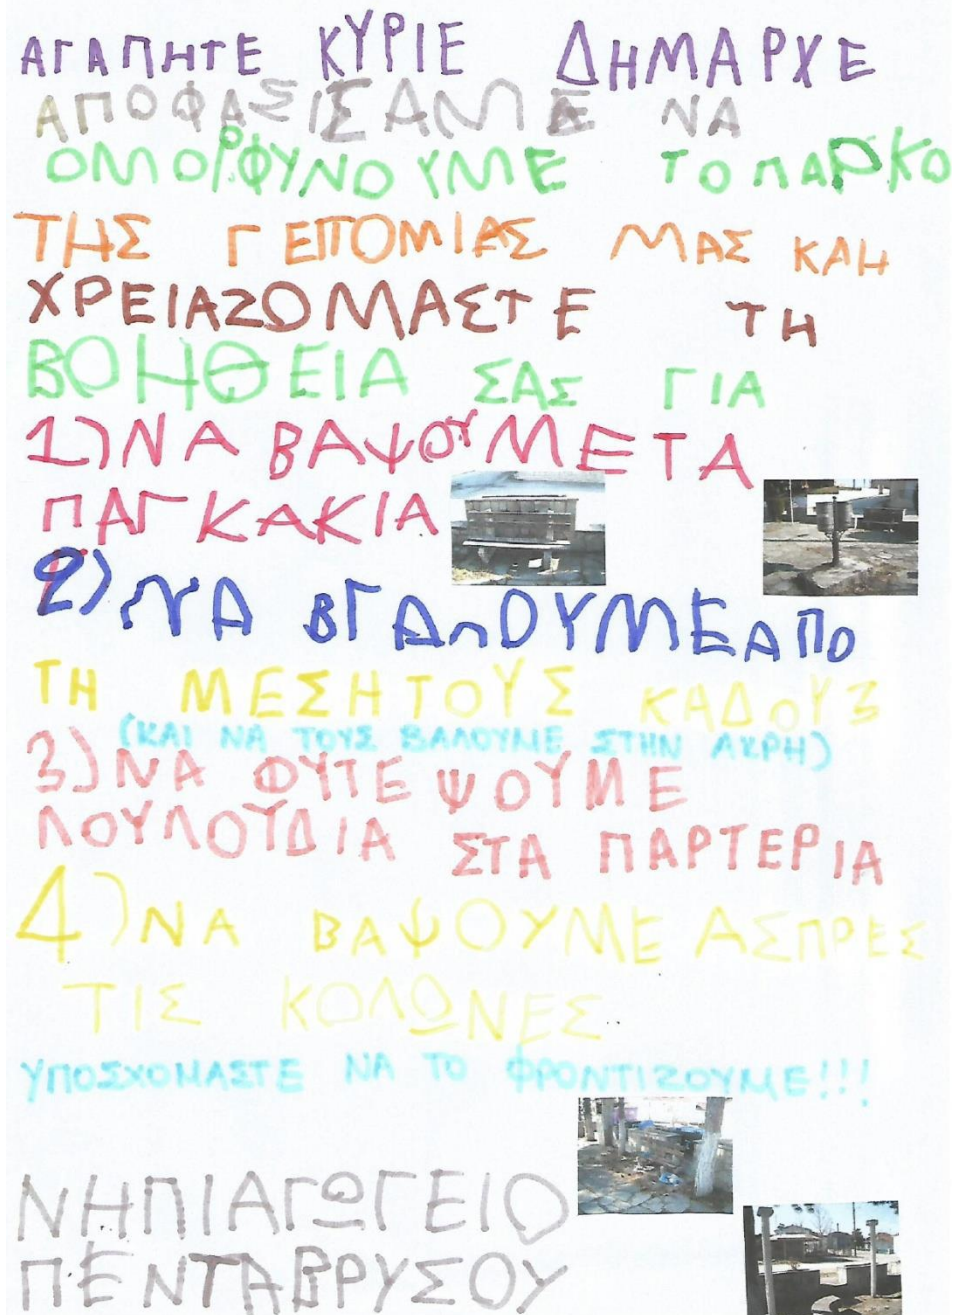 ΑΓΑΠΗΤΕ ΚΥΡΙΕ ΔΗΜΑΡΧΕ
ΑΠΟΦΑΣΙΣΑΜΕ ΝΑ
ΟΜΟΡΦΥΝΟΥΜΕ ΤΟ ΠΑΡΚΟ
ΤΗΣ ΓΕΠΟΜΙΑΣ ΜΑΣ ΚΑΗ
ΧΡΕΙΑΖΟΜΑΣΤΕ ΤΗ
ΒΟΗΘΕΙΑ ΣΑΣ ΓΙΑ
1)ΝΑ ΒΑΨΟΥΜΕ ΤΑ
ΠΑΓΚΑΚΙΑ
2)ΝΑ ΒΓΑΛΟΥΜΕ ΑΠΟ
ΤΗ ΜΕΣΗ ΤΟΥΣ ΚΑΔΟΥΣ
(ΚΑΙ ΝΑ ΤΟΥΣ ΒΑΛΟΥΜΕ ΣΤΗΝ ΑΚΡΗ)
3)ΝΑ ΦΥΤΕΨΟΥΜΕ
ΛΟΥΛΟΥΔΙΑ ΣΤΑ ΠΑΡΤΕΡΙΑ
4)ΝΑ ΒΑΨΟΥΜΕ ΑΣΠΡΕΣ
ΤΙΣ ΚΟΛΩΝΕΣ..
ΥΠΟΣΧΟΜΑΣΤΕ ΝΑ ΤΟ ΦΡΟΝΤΙΖΟΥΜΕ!!!
ΝΗΠΙΑΓΩΓΕΙΟ
ΠΕΝΤΑΒΡΥΣΟΥ